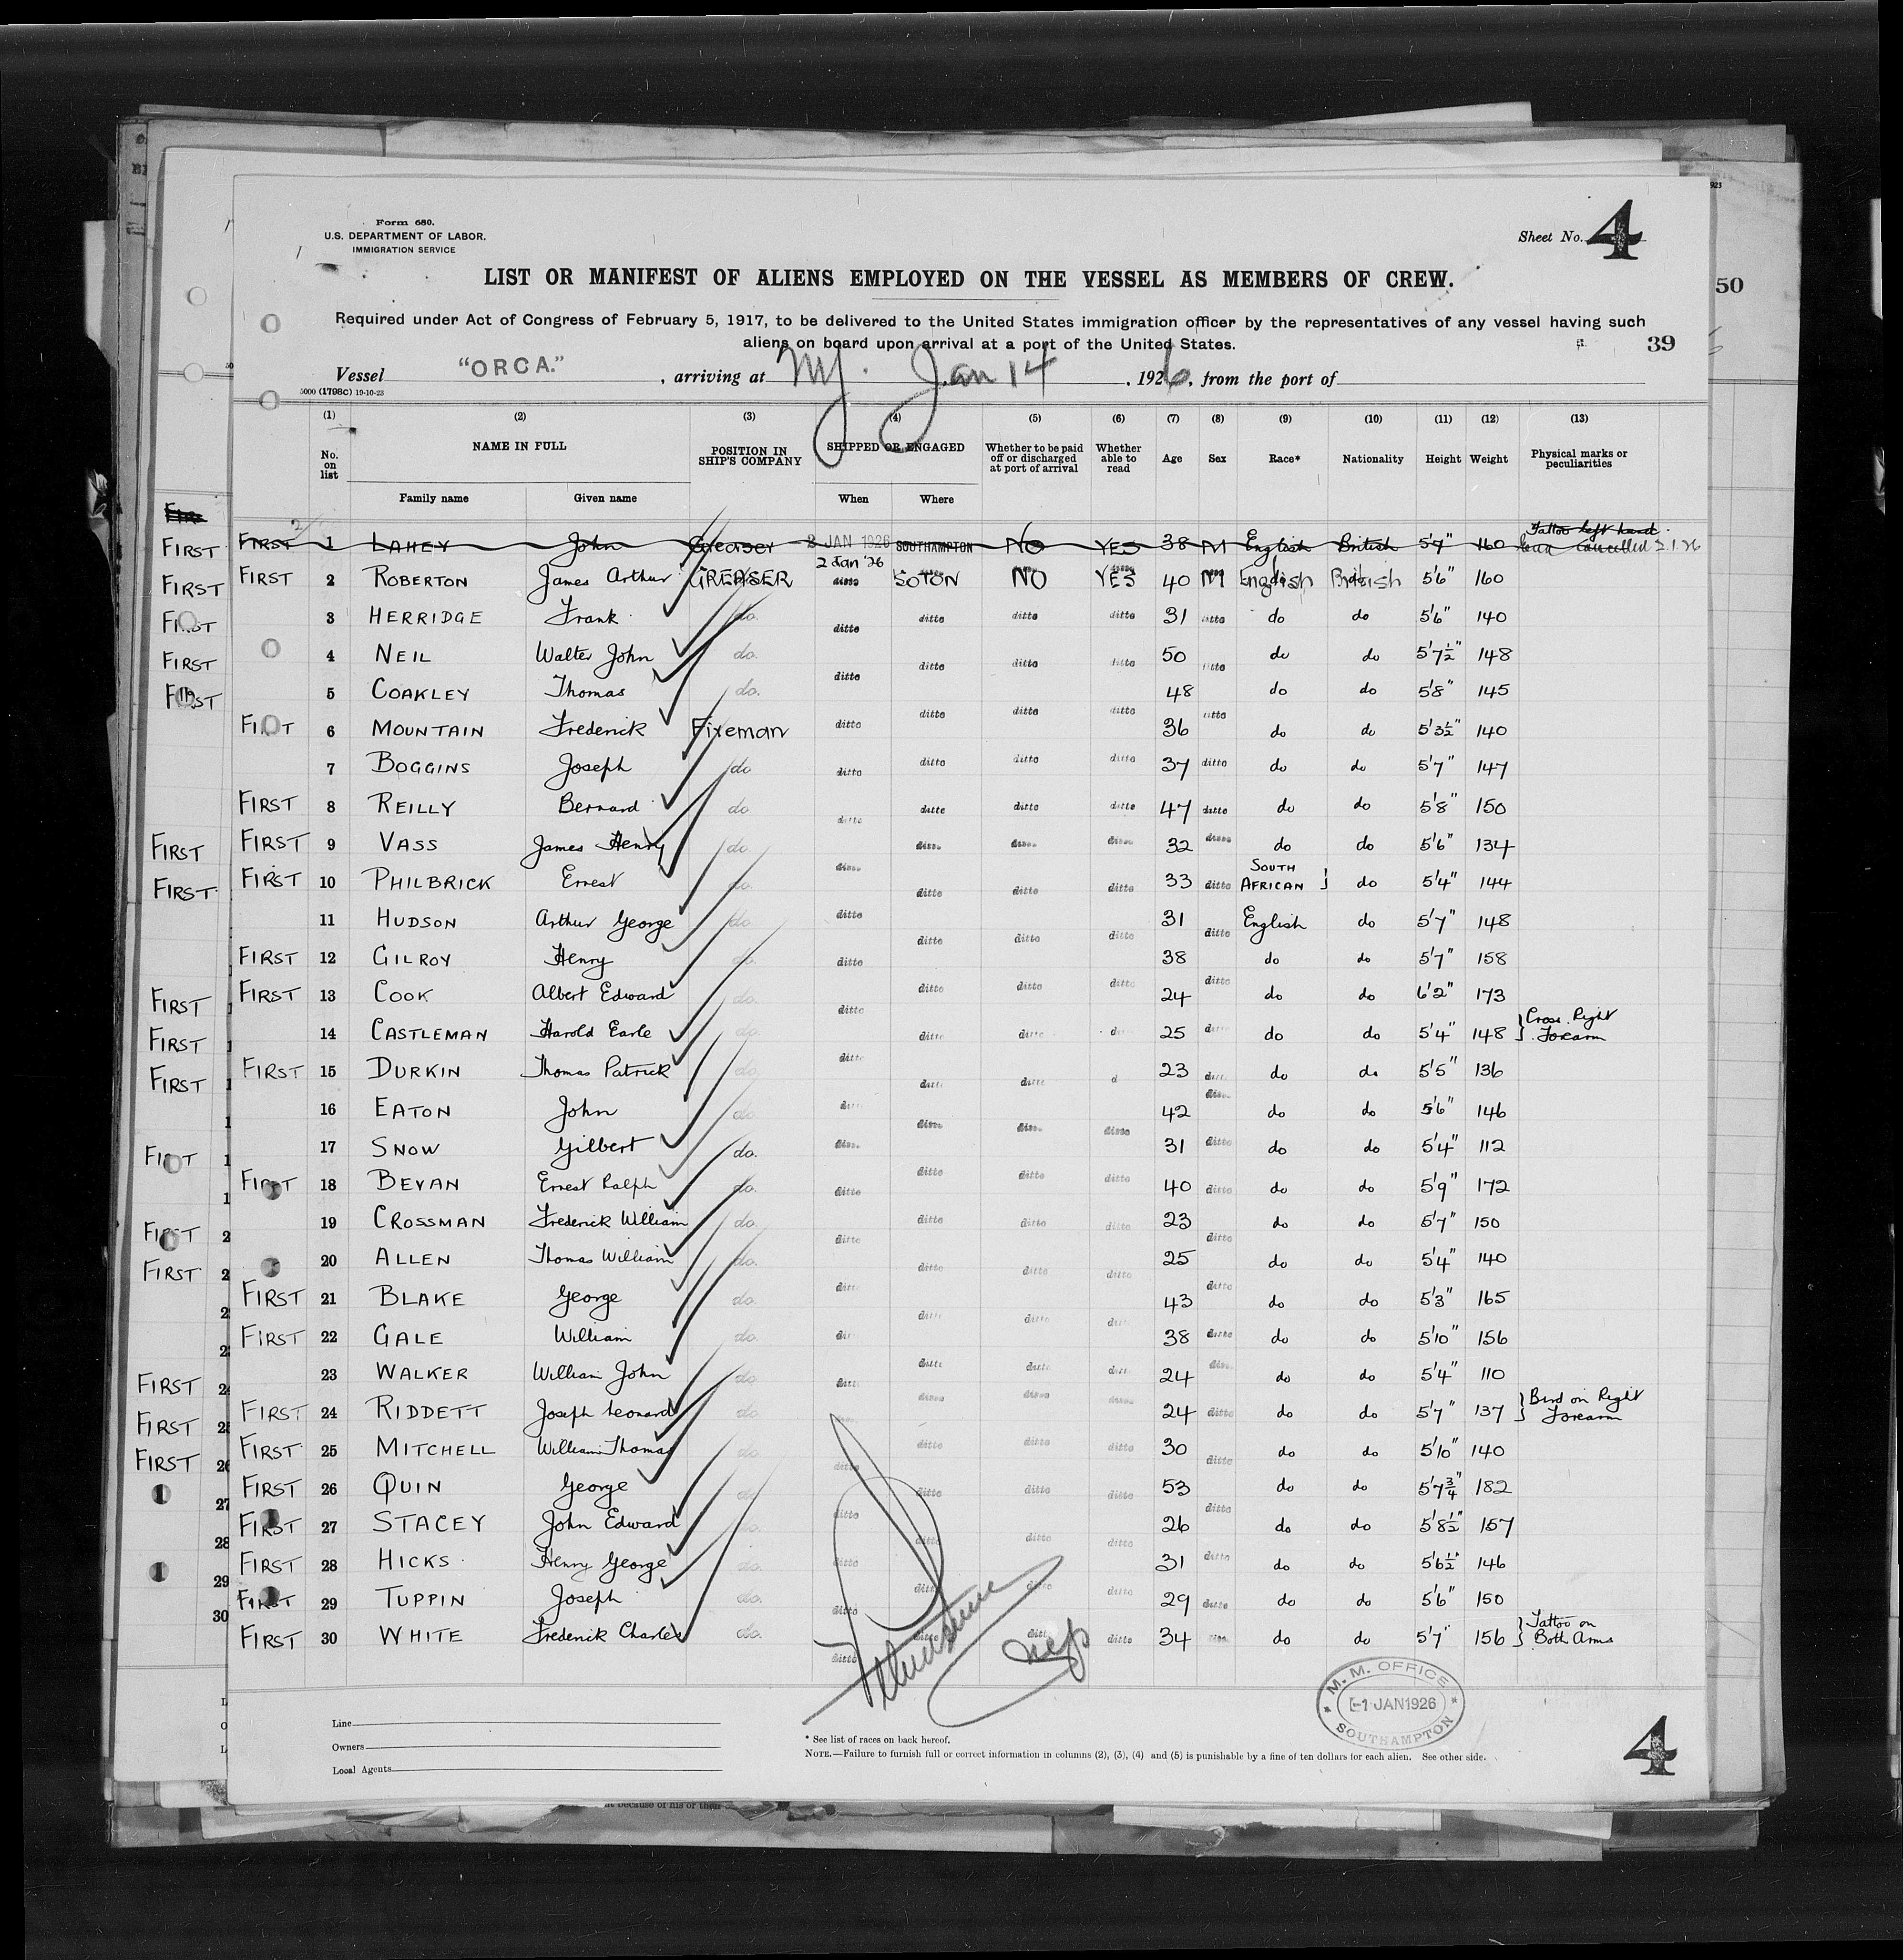 Form 680.
U.S. DEPARTMENT OF LABOR.
IMMIGRATION SERVICE
Sheet No. 4
LIST OR MANIFEST OF ALIENS EMPLOYED ON THE VESSEL AS MEMBERS OF CREW.
Required under Act of Congress of February 5, 1917, to be delivered to the United States immigration officer by the representatives of any vessel having such
aliens on board upon arrival at a port of the United States.
50
39
Vessel "ORCA." , arriving at NY. Jan 14 , 1926, from the port of
5000 (1798C) 19-10-23
(1) (2) (3) (4) (5) (6) (7) (8) (9) (10) (11) (12) (13)
No. on list NAME IN FULL POSITION IN SHIP'S COMPANY SHIPPED OR ENGAGED Whether to be paid off or discharged at port of arrival Whether able to read Age Sex Race* Nationality Height Weight Physical marks or peculiarities
Family name Given name When Where
FIRST 1 LAHEY John Greaser 2 JAN 1926 SOUTHAMPTON NO YES 38 M English British 5'7" 160 Tattoo left hand cancelled 2.1.26
FIRST 2 ROBERTON James Arthur GREASER 2 Jan '26 SOTON NO YES 40 M English British 5'6" 160
3 HERRIDGE Frank do. ditto ditto ditto ditto 31 ditto do do 5'6" 140
4 NEIL Walter John do. ditto ditto ditto ditto 50 ditto do do 5'7½" 148
5 COAKLEY Thomas do. 48 do do 5'8" 145
FIRST 6 MOUNTAIN Frederick Fireman ditto ditto ditto ditto 36 ditto do do 5'3½" 140
7 BOGGINS Joseph do ditto ditto ditto ditto 37 ditto do do 5'7" 147
FIRST 8 REILLY Bernard do ditto ditto ditto ditto 47 ditto do do 5'8" 150
FIRST 9 VASS James Henry do. ditto ditto ditto ditto 32 ditto do do 5'6" 134
FIRST 10 PHILBRICK Ernest do. ditto ditto ditto ditto 33 ditto SOUTH AFRICAN do 5'4" 144
11 HUDSON Arthur George do ditto ditto ditto ditto 31 ditto English do 5'7" 148
FIRST 12 GILROY Henry do. ditto 38 do do 5'7" 158
FIRST 13 COOK Albert Edward do. ditto ditto ditto ditto 24 ditto do do 6'2" 173
14 CASTLEMAN Harold Earle do. ditto ditto 25 do do 5'4" 148 Cross Right Forearm
FIRST 15 DURKIN Thomas Patrick do. ditto ditto ditto 23 do do 5'5" 136
16 EATON John do 42 ditto do do 5'6" 146
17 SNOW Gilbert do. ditto ditto ditto ditto 31 ditto do do 5'4" 112
FIRST 18 BEVAN Ernest Ralph do. ditto ditto ditto ditto 40 ditto do do 5'9" 172
19 CROSSMAN Frederick William do. ditto ditto ditto ditto 23 ditto do do 5'7" 150
20 ALLEN Thomas William do. ditto ditto ditto 25 do do 5'4" 140
FIRST 21 BLAKE George do. ditto ditto ditto 43 ditto do do 5'3" 165
FIRST 22 GALE William do. 38 ditto do do 5'10" 156
23 WALKER William John do. ditto ditto ditto ditto 24 do do 5'4" 110
FIRST 24 RIDDETT Joseph Leonard do. ditto ditto ditto 24 ditto do do 5'7" 137 Bird on Right Forearm
FIRST 25 MITCHELL William Thomas do. ditto ditto ditto ditto 30 ditto do do 5'10" 140
FIRST 26 QUIN George do. ditto ditto ditto 53 do do 5'7¾" 182
FIRST 27 STACEY John Edward do. ditto ditto ditto ditto 26 ditto do do 5'8½" 157
FIRST 28 HICKS Henry George do. ditto 31 ditto do do 5'6½" 146
FIRST 29 TUPPIN Joseph do. ditto ditto ditto ditto 29 ditto do do 5'6" 150
FIRST 30 WHITE Frederick Charles do. ditto ditto ditto ditto 34 do do 5'7" 156 Tattoo on Both Arms
M. M. OFFICE
-1 JAN 1926
SOUTHAMPTON
Line
Owners
Local Agents
* See list of races on back hereof.
NOTE.—Failure to furnish full or correct information in columns (2), (3), (4) and (5) is punishable by a fine of ten dollars for each alien. See other side.
4